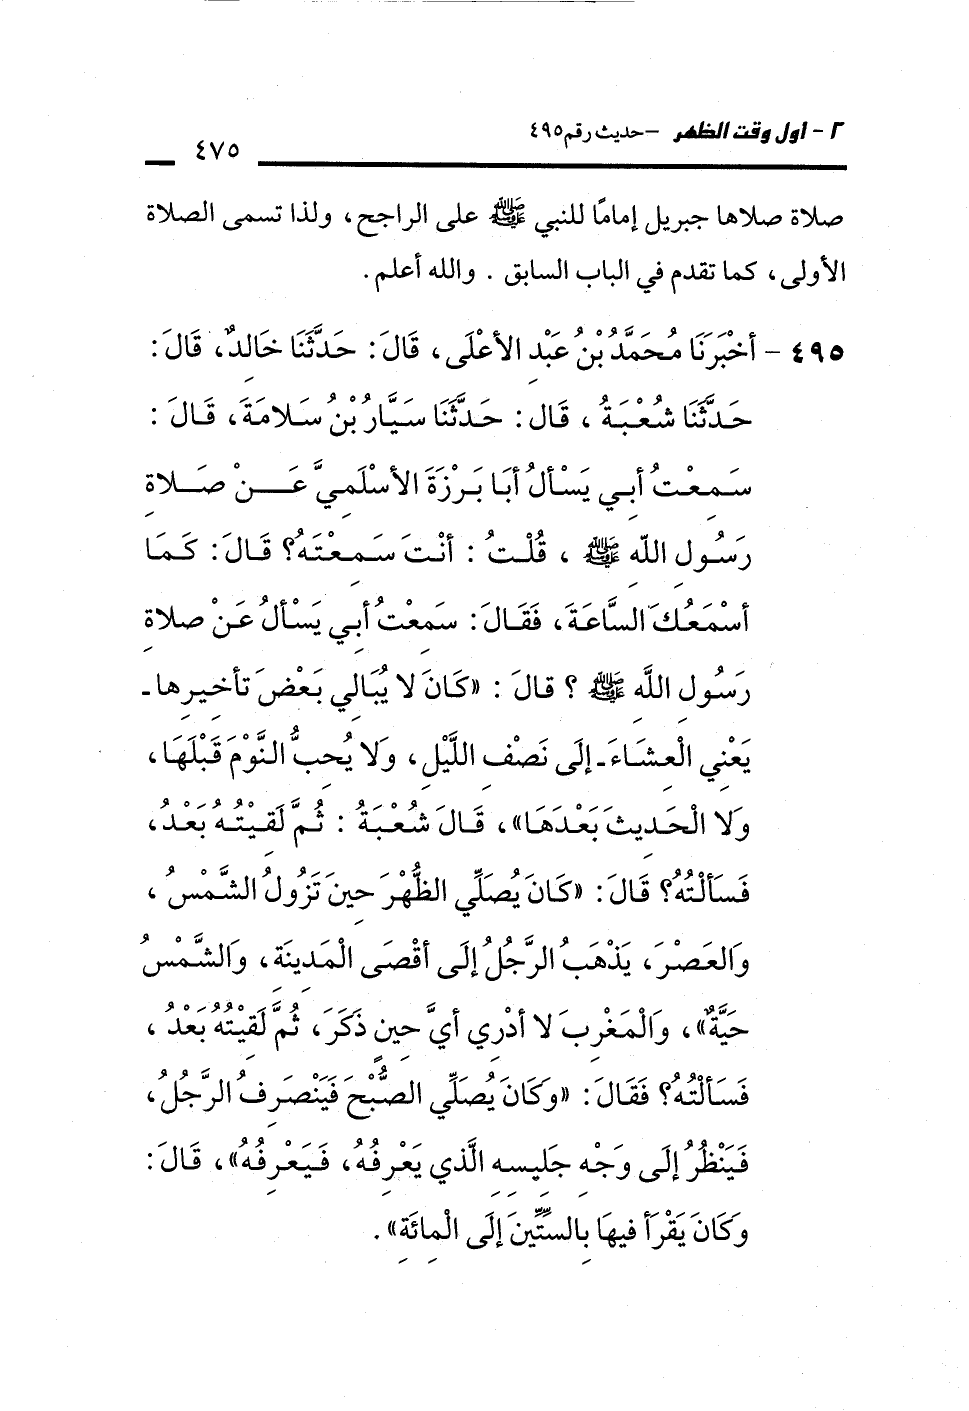 ٢ - أول وقت الظهر - حديث رقم ٤٩٥
٤٧٥
صلاة صلاها جبريل إمامًا للنبي ﷺ على الراجح، ولذا تسمى الصلاة
الأولى، كما تقدم في الباب السابق . والله أعلم.
٤٩٥ - أخْبَرَنَا مُحَمَّدُ بْنُ عَبْدِ الأعْلَى، قَالَ: حَدَّثَنَا خَالِدٌ، قَالَ:
حَدَّثَنَا شُعْبَةُ ، قَال: حَدَّثَنَا سَيَّارُ بْنُ سَلامَةَ، قَالَ :
سَمِعْتُ أبِي يَسْألُ أبَا بَرْزَةَ الأسْلَمِيَّ عَنْ صَلاةِ
رَسُولِ اللَّهِ ﷺ ، قُلْتُ : أنْتَ سَمِعْتَهُ؟ قَالَ: كَمَا
أسْمَعُكَ السَّاعَةَ، فَقَالَ: سَمِعْتُ أبِي يَسْألُ عَنْ صلاةِ
رَسُولِ اللَّهِ ﷺ ؟ قالَ : «كَانَ لا يُبَالِي بَعْضَ تأخيرِها -
يَعْنِي الْعِشَاءَ - إلَى نَصْفِ اللَّيْلِ، وَلا يُحِبُّ النَّوْمَ قَبْلَهَا،
وَلا الْحَدِيثَ بَعْدَهَا»، قَالَ شُعْبَةُ : ثُمَّ لَقِيْتُهُ بَعْدُ،
فَسَألْتُهُ؟ قَالَ: «كَانَ يُصَلِّي الظُّهْرَ حِينَ تَزُولُ الشَّمْسُ ،
وَالعَصْرَ، يَذْهَبُ الرَّجُلُ إلَى أقْصَى الْمَدِينَةِ، وَالشَّمْسُ
حَيَّةٌ»، وَالْمَغْرِبَ لا أدْرِي أيَّ حِينٍ ذَكَرَ، ثُمَّ لَقِيْتُهُ بَعْدُ ،
فَسَألْتُهُ؟ فَقَالَ: «وكَانَ يُصَلِّي الصُّبْحَ فَيَنْصَرِفُ الرَّجُلُ،
فَيَنْظُرُ إلَى وَجْهِ جَلِيسِهِ الَّذي يَعْرِفُهُ، فَيَعْرِفُهُ»، قَالَ:
وَكَانَ يَقْرَأ فِيهَا بِالسِّتِّينَ إلَى الْمِائَةِ».